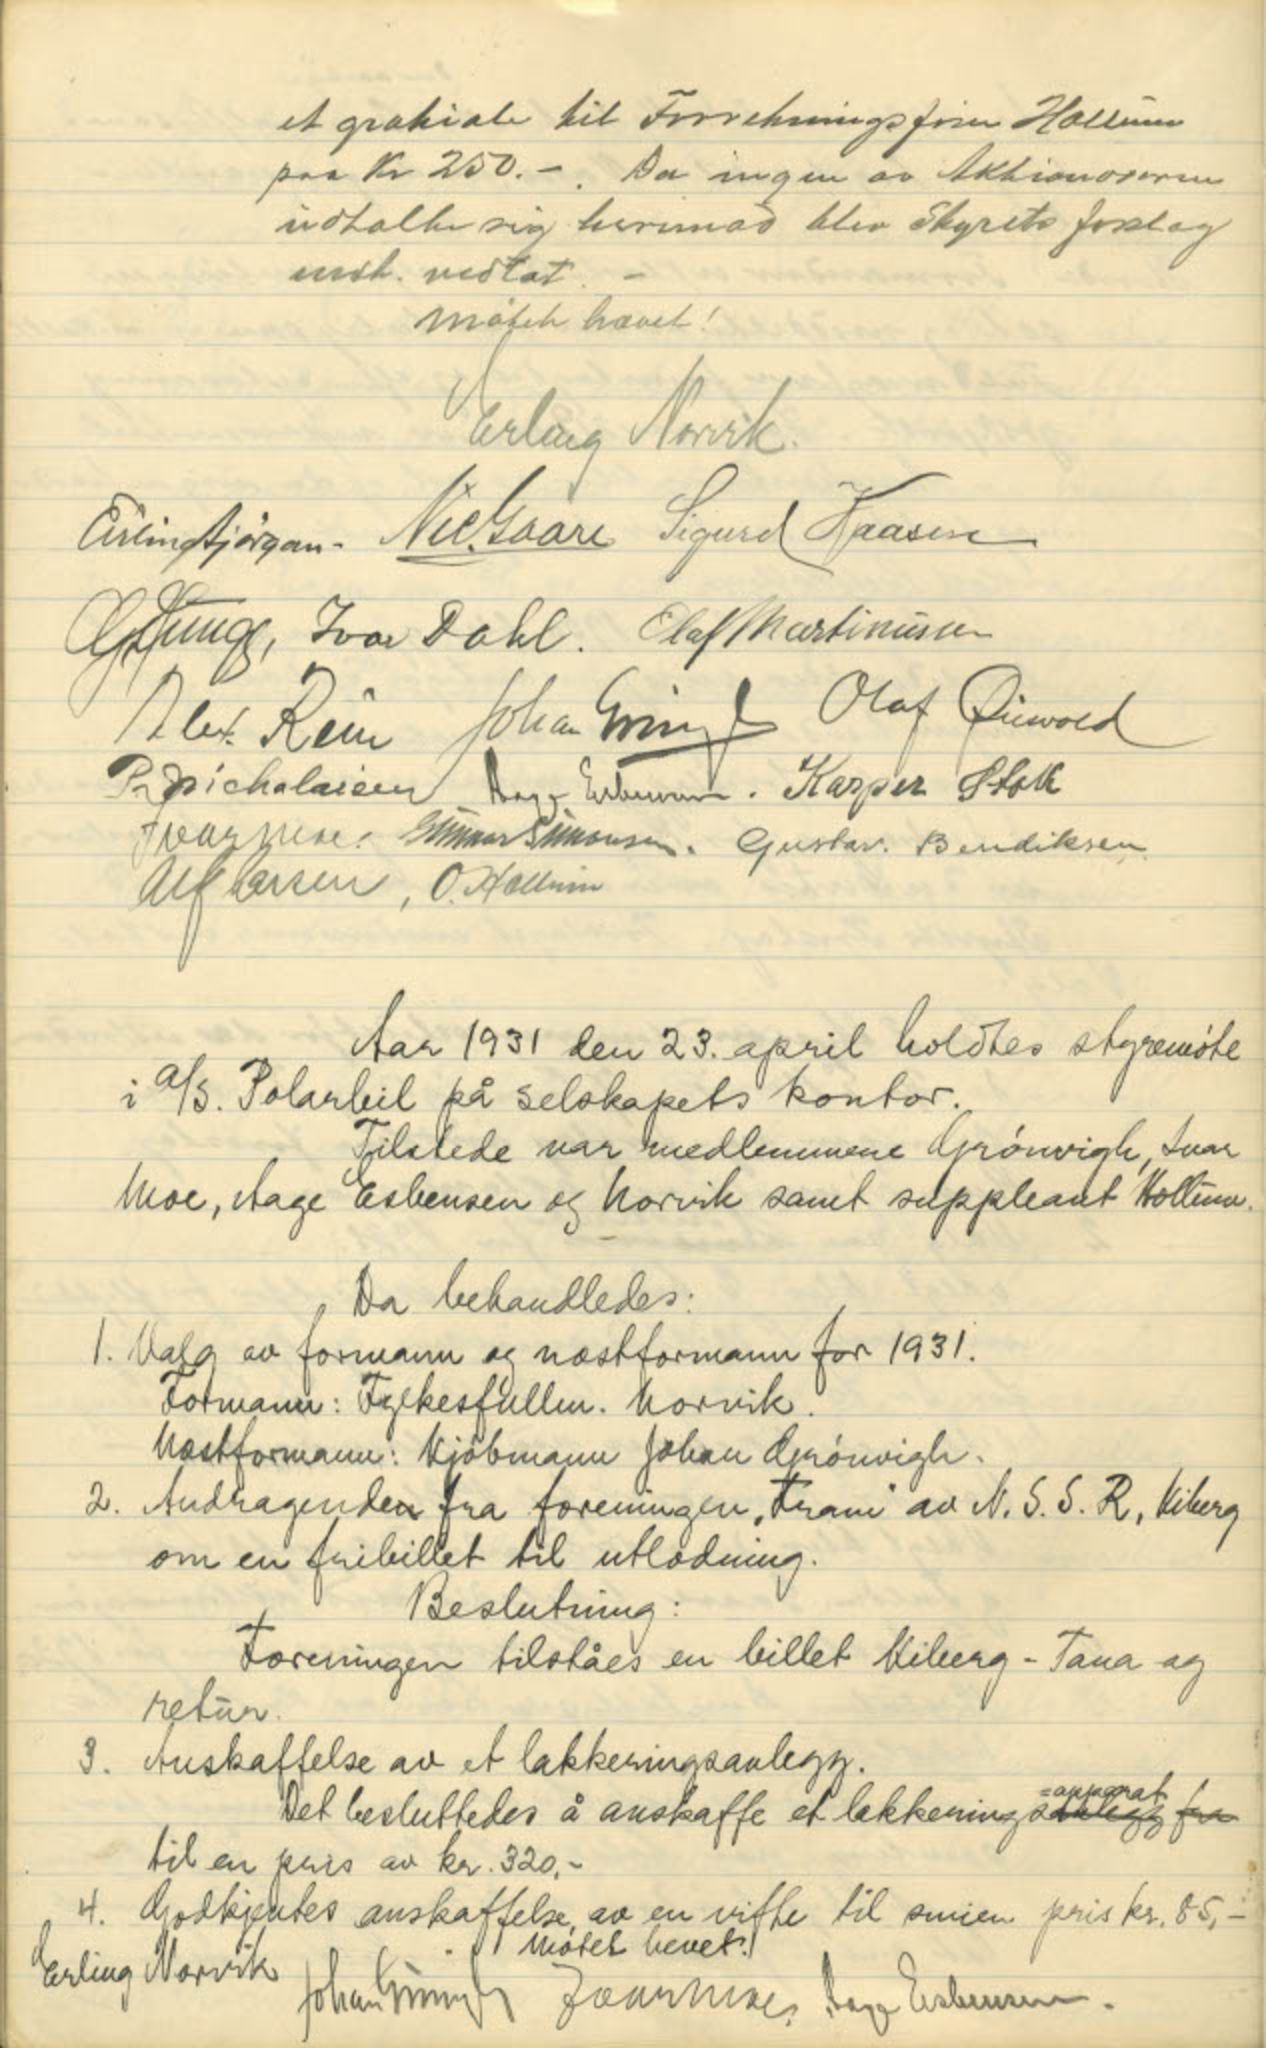 et gratiale til Forretningsfører Hallum
paa Kr 250.-. Da ingen av Aktionærerne
udtalte sig herimod blev Styrets forslag
enst. vedtat. -
Møtet hævet!
Erling Norvik.
Nic. Gaare Sigurd Kaasen
Ivar Dahl. Olaf Martinusen
Alex. Rein Johan Grönvigh Olaf
P. Nicholaisen Aage Esbensen. Kasper Stok
Ivar Moe. Gunnar Simonsen. Gustav. Bendiksen
Alf Larsen, O. Hallum
Aar 1931 den 23. april holdtes styremöte
i A/S. Polarbil på selskapets kontor.
Tilstede var medlemmene Grönvigh, Ivar
Moe, Aage Esbensen og Norvik samt suppleant Hallum.
Da behandledes:
1. Valg av formann og næstformann for 1931.
Formann: Fylkesfullm. Norvik.
Næstformann: Kjöbmann Johan Grönvigh.
2. Andragenden fra foreningen "Fram" av N. S. S. R, Kiberg
om en fribillet til utlodning.
Beslutning:
Foreningen tilståes en billet Kiberg - Tana og
retur.
3. Anskaffelse av et lakkeringsanlegg.
=apparat
Det besluttedes å anskaffe et lakkeringsanlegg fra
til en pris av kr. 320,-
4. Godkjentes anskaffelse av en vifte til smien pris kr. 85,-
Mötet hevet.
Erling Norvik Johan Grönvigh Ivar Moe, Aage Esbensen.